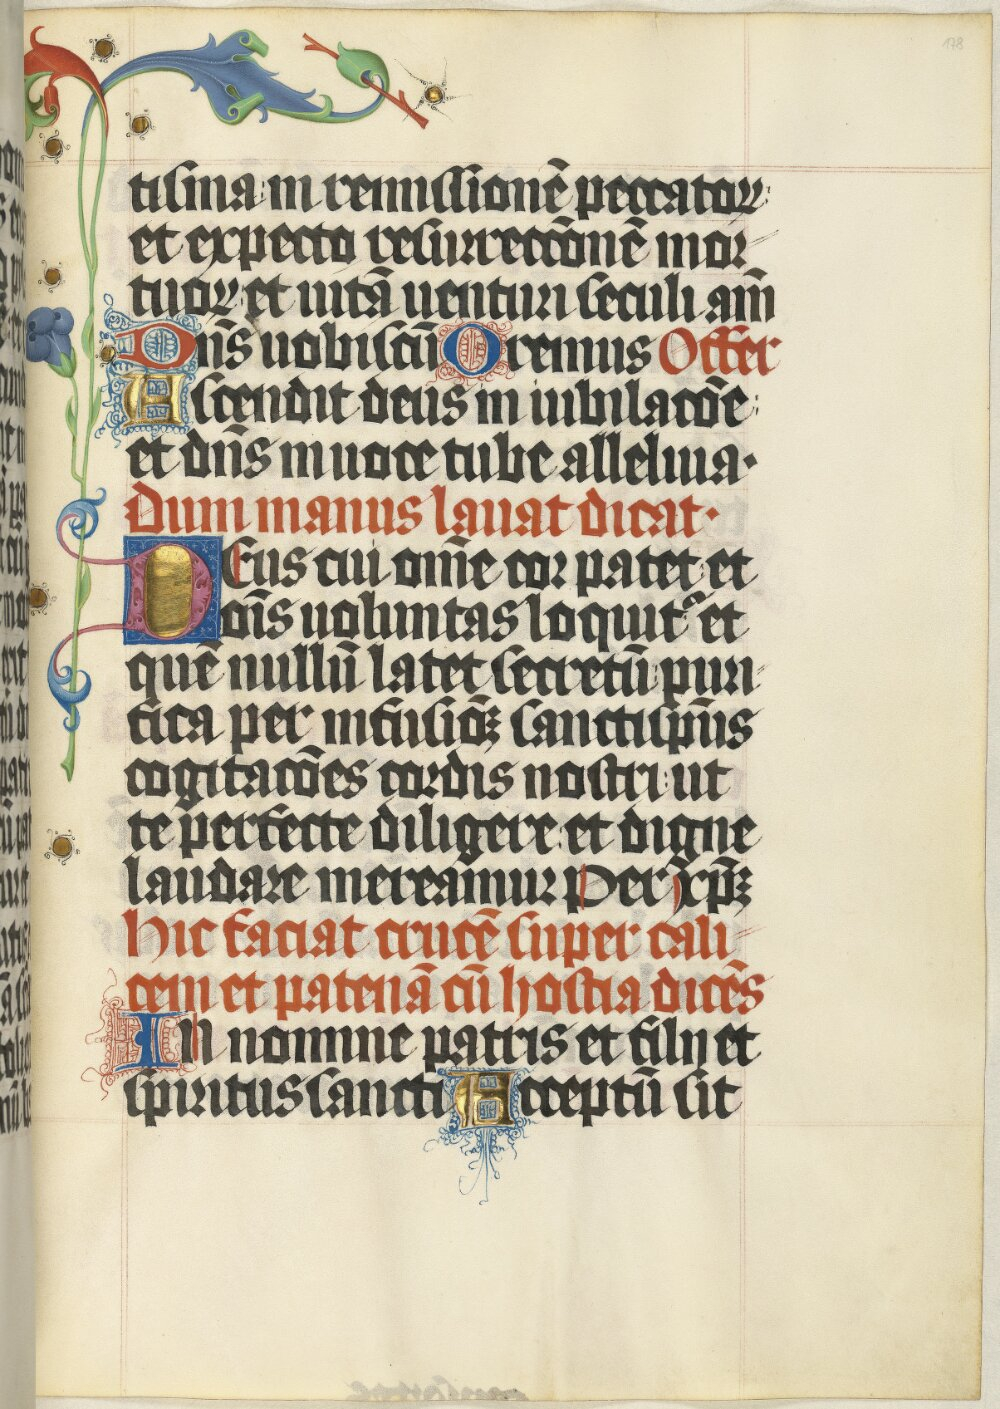 178
tisma in remissionē peccatoꝝ
et expecto resurrecc̄onē mor
tuoꝝ et uitā uenturi seculi am̄
Dn̄s uobiscū Oremus Offer
Ascendit deus in iubilac̄oe
et dn̄s in uoce tube alleluia·
Dum manus lauat dicat·
Deus cui om̄e cor patet et
om̄is uoluntas loquit᷑ et
quē nullū latet secretū puri
fica per infusioꝫ sancti sp̄us
cogitac̄oes cordis nostri ut
te perfecte diligere et digne
laudare mereamur Per xp̄ꝫ
hic faciat crucē super cali
cem et patenā cū hostia dicēs
In nomine patris et filij et
spiritus sancti Acceptū sit